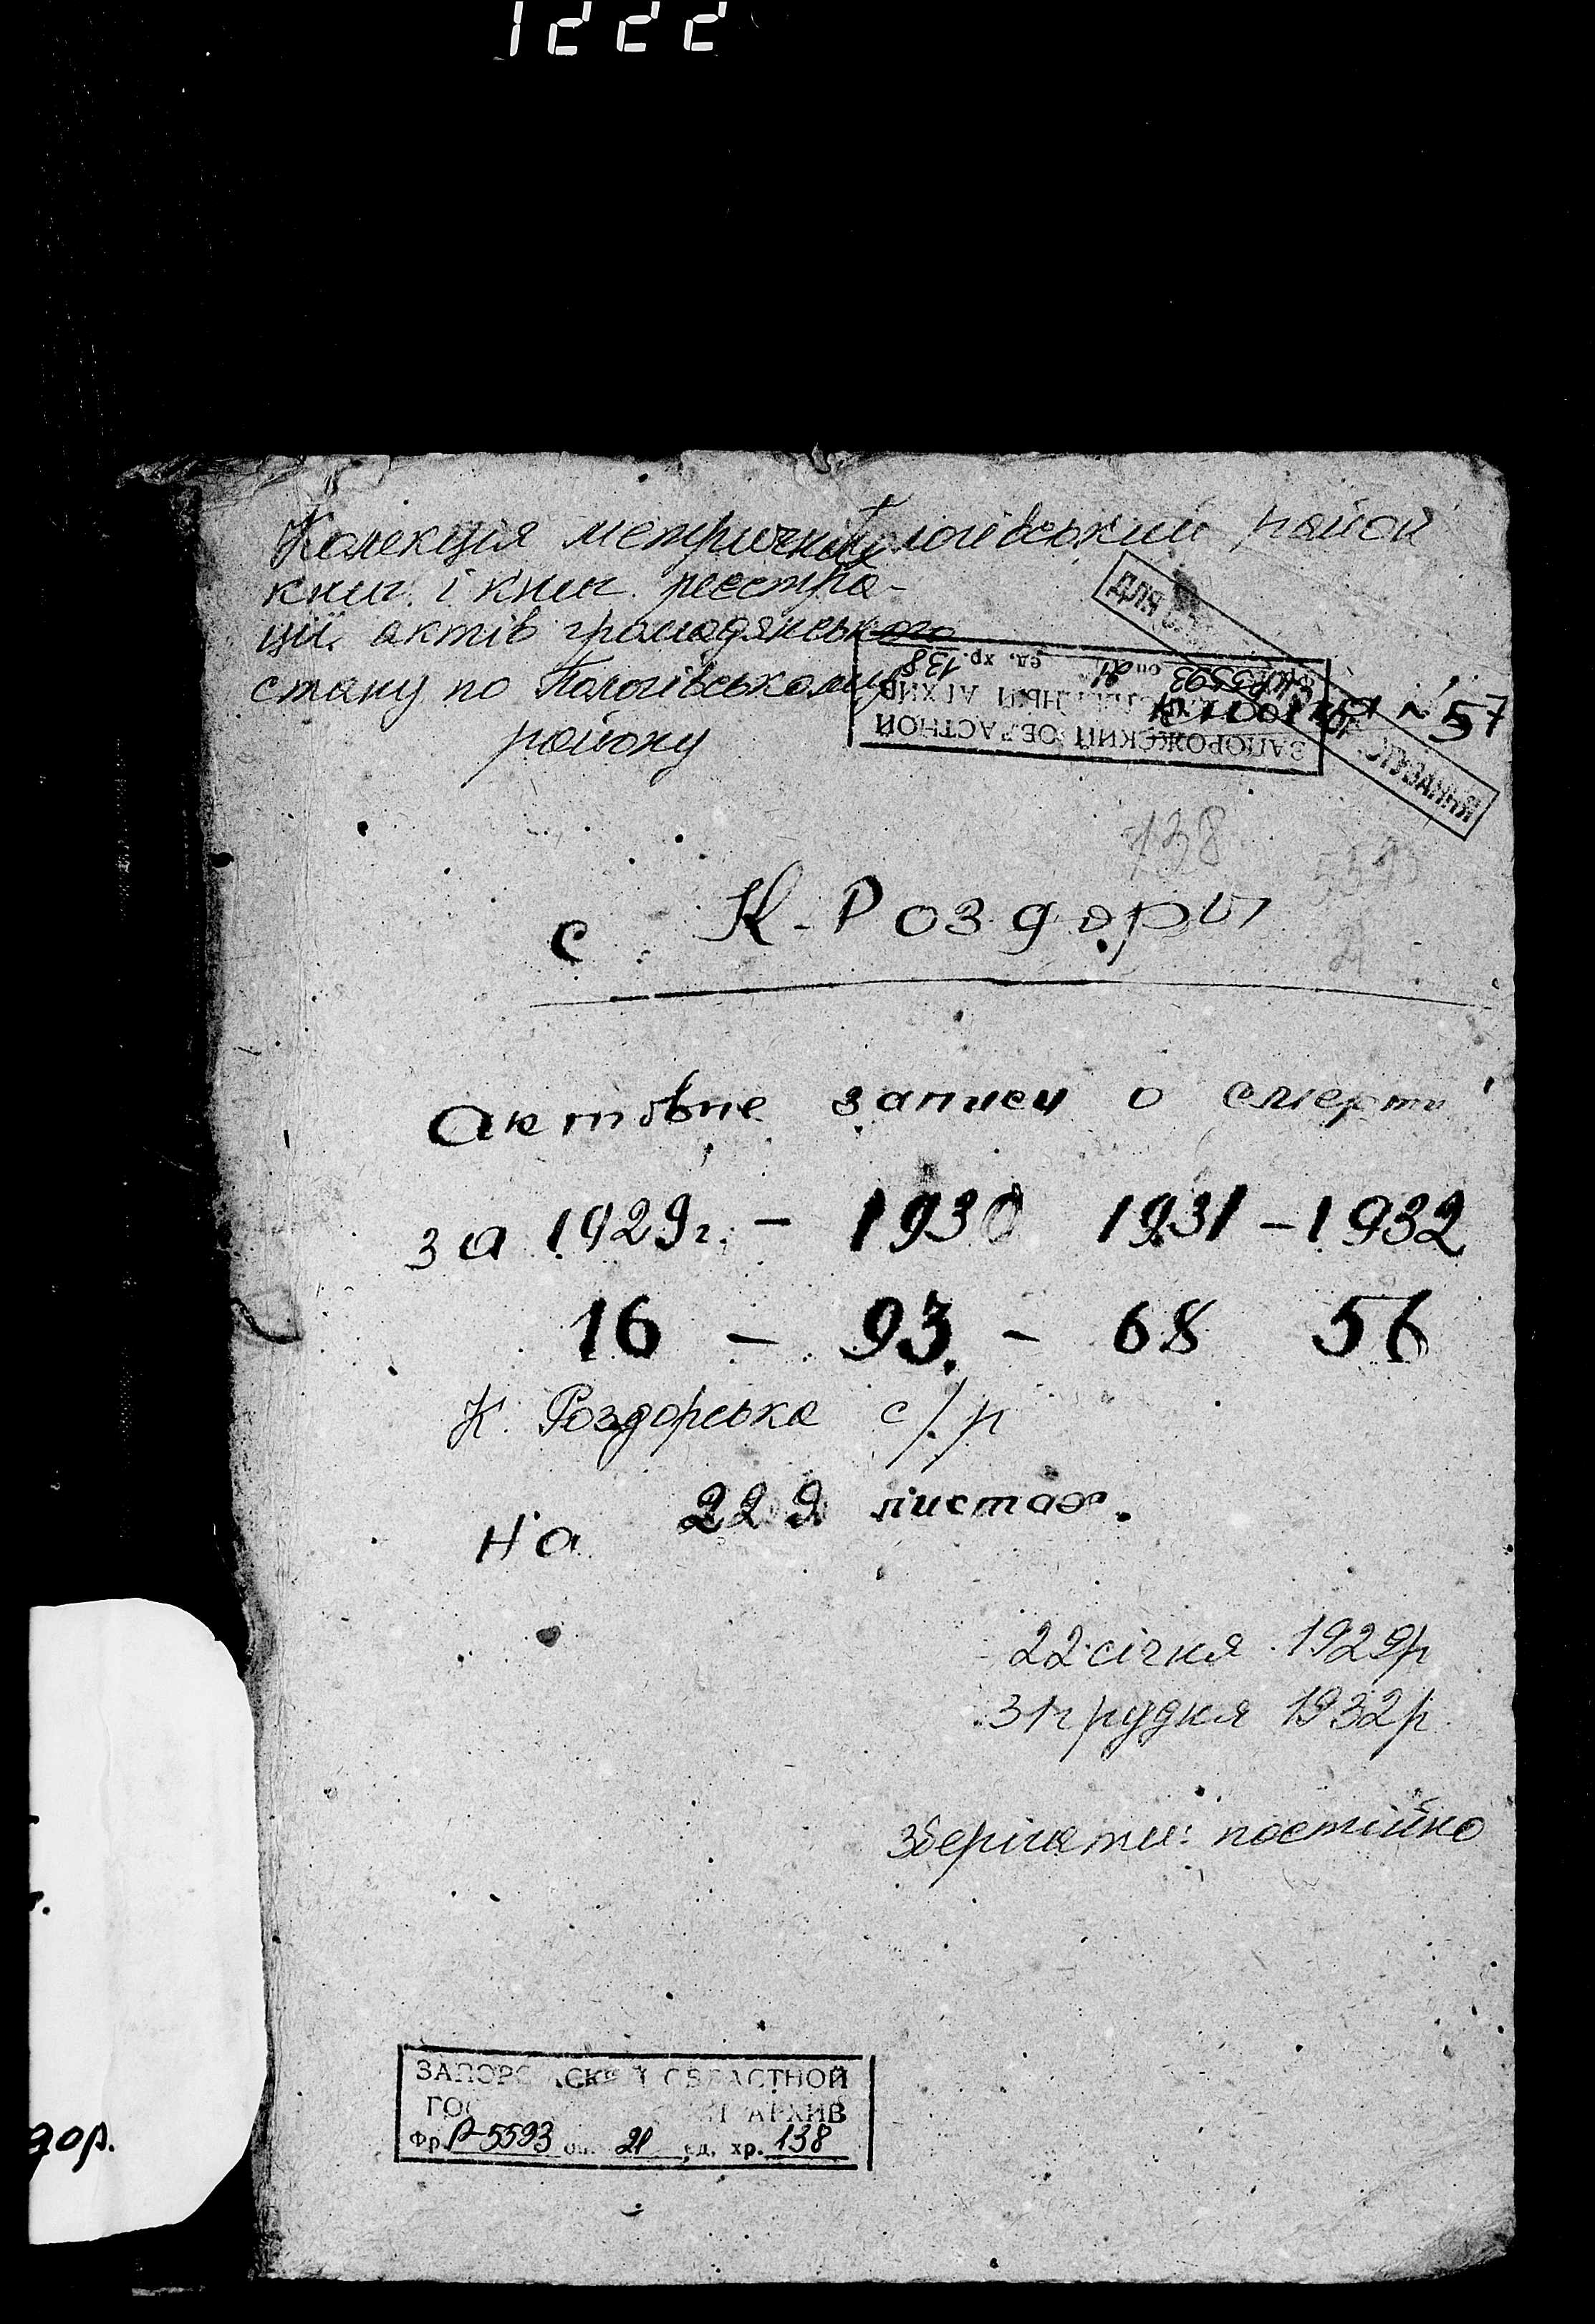 1222
Колекція метричних Пологівський район
книг і книг реєстра-
ції актів громадянського
стану по Пологівському
району
ДЛЯ
ЗАПОРОЖСКИЙ ОБЛАСТНОЙ
АРХИВ
Р-5593 оп 21 ед. хр. 138
Книга № 57
138
5593
21
с. К-Роздоры
Октовые записи о смерти
за 1929г. - 1930 1931 - 1932
16 - 93. - 68 56
К. Роздорська с/р
На 229 листах.
22 січня 1929р
31 грудня 1932р.
Зберігати: постійно
ЗАПОРОЖСКИЙ ОБЛАСТНОЙ
АРХИВ
Фр. Р-5593 оп. 21 ед. хр. 138
дор.